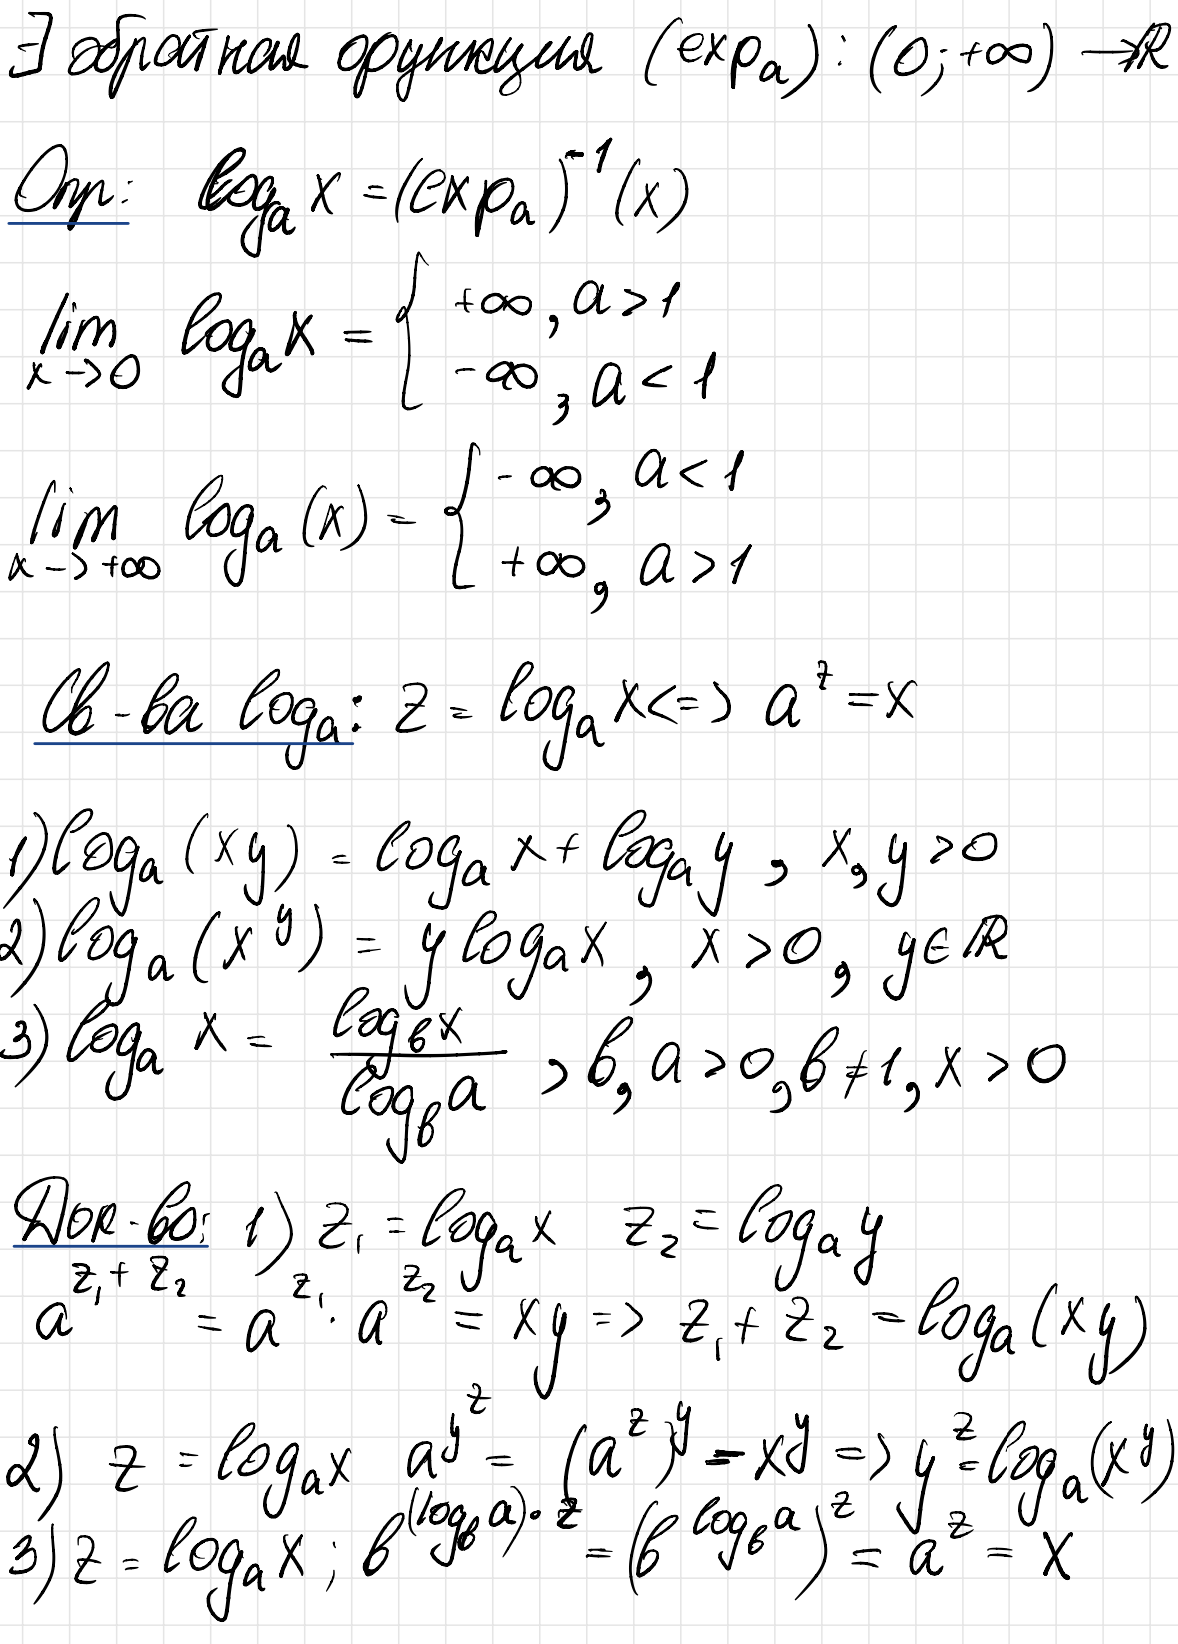 ∃ обратная функция (exp_a): (0; +∞) → ℝ
Опр: log_a x = (exp_a)^{-1} (x)
lim_{x→0} log_a x = { +∞, a > 1
-∞, a < 1
lim_{x→+∞} log_a (x) = { -∞, a < 1
+∞, a > 1
Св-ва log_a: z = log_a x <=> a^z = x
1) log_a (xy) = log_a x + log_a y, x, y > 0
2) log_a (x^y) = y log_a x, x > 0, y ∈ ℝ
3) log_a x = \frac{log_в x}{log_в a}, в, a > 0, в ≠ 1, x > 0
Док-во: 1) z_1 = log_a x z_2 = log_a y
a^{z_1 + z_2} = a^{z_1} · a^{z_2} = xy => z_1 + z_2 = log_a (xy)
2) z = log_a x a^{y^z} = (a^z)^y = x^y => y^z = log_a (x^y)
3) z = log_a x; в^{(log_в a)·z} = (в^{log_в a})^z = a^z = x